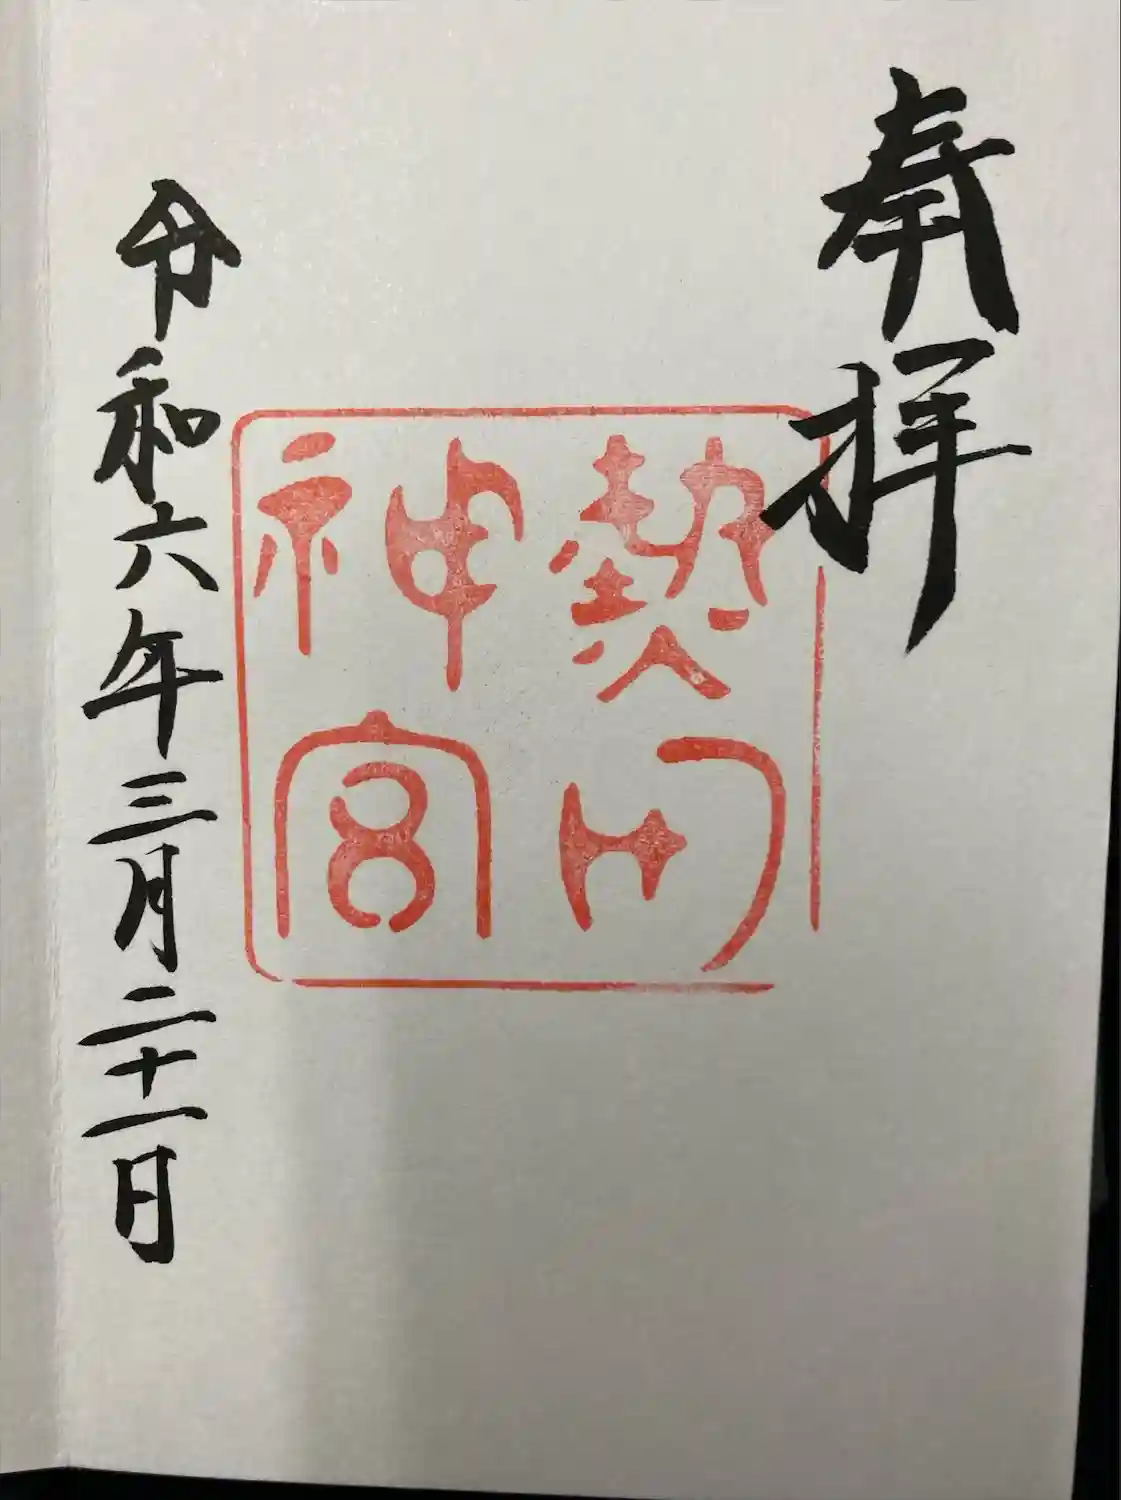 奉拝
熱田
神宮
令和六年三月二十一日